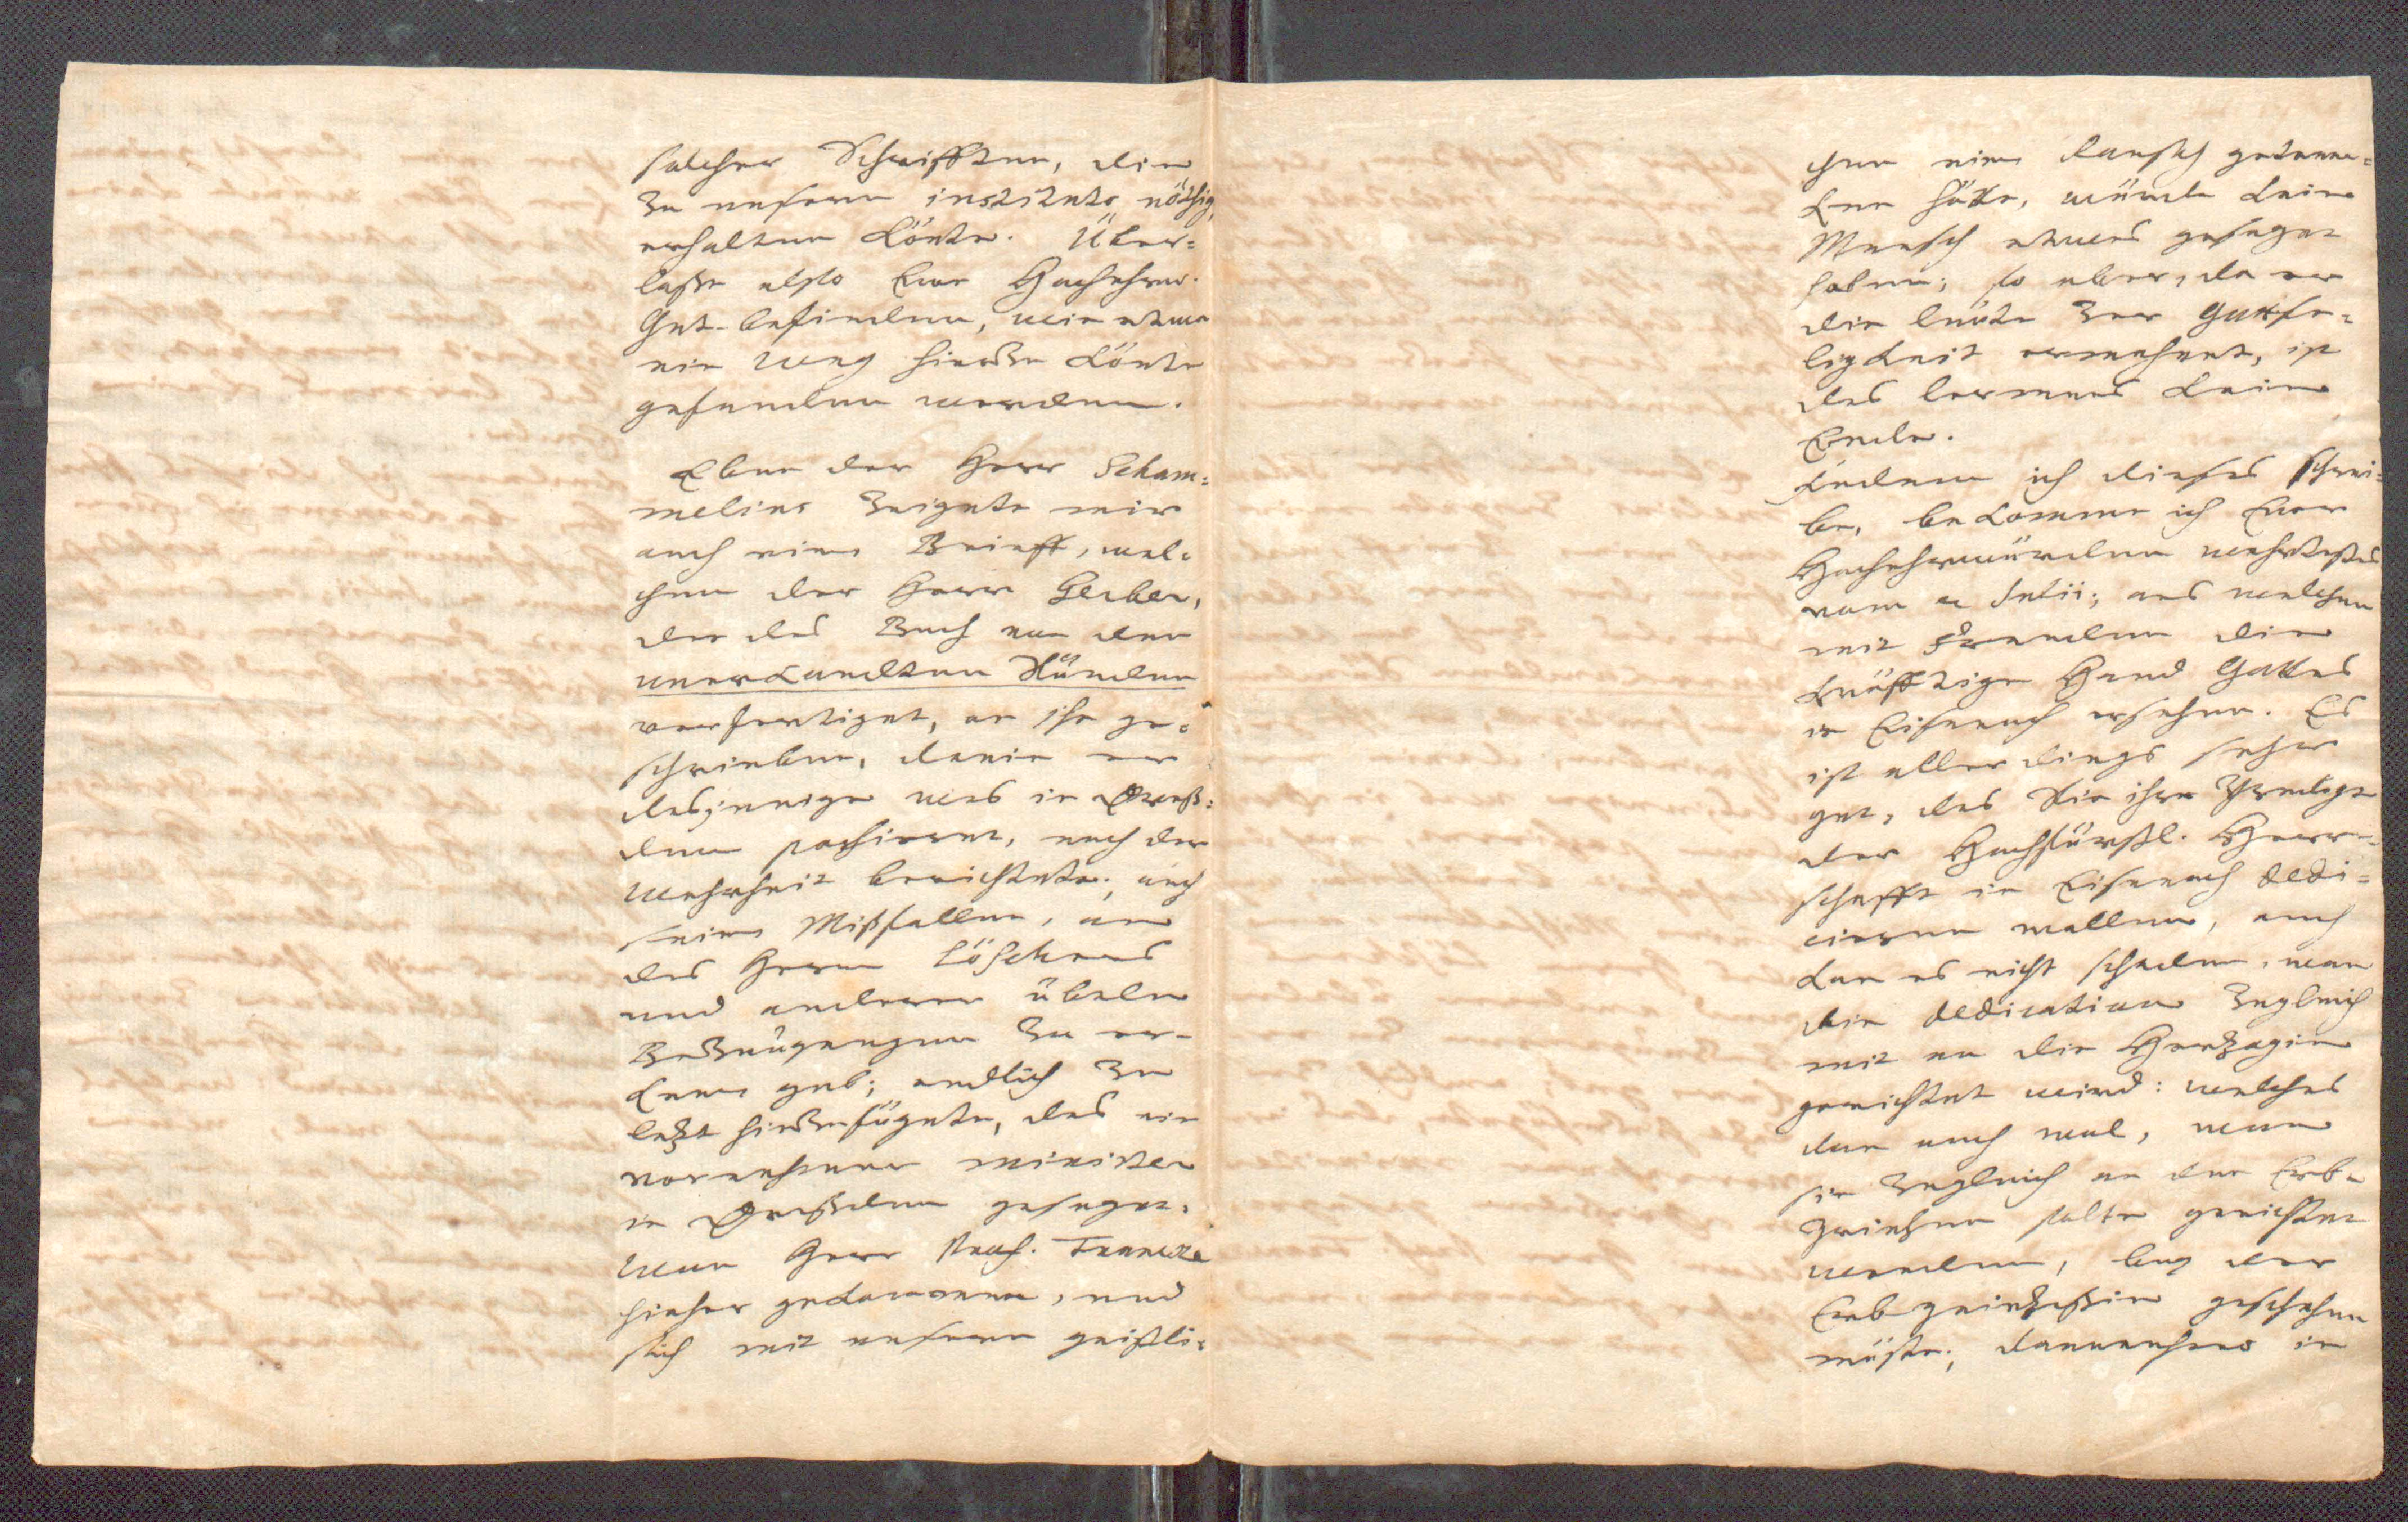 solcher Schrifften, die
zu unserm instituto nöthig,
erhalten könte. Über=
laße also Eur Hochehrw.
Gut-befinden, wie etwa
ein weg hierzu könte
gefunden werden.
Eben der Herr Scham=
melius zeigete mir
auch einen Brieff, wel=
chen der Herr Gerber,
der das Buch von den
unerkandten Sünden
verfertiget, an ihn ge=
schrieben, darin er
dasjenige was in Dreß=
den passiret, nach der
Wahrheit berichtete; auch
sein Mißfallen, an
des Herrn Löschers
und anderer übeln
Bezeugungen zu er=
kennen gab; endlich zu
letzt hinzufügete, das ein
vornehmer minister
in Dreßden gesaget,
wan Herr Prof. Francke
hieher gekommen, und
sich mit unsern geistli=
chen einen Rausch getrun=
ken hätte, würde kein
Mensch etwas gesaget
haben; so aber, da er
die leute zur Gottse=
ligkeit ermahnet, ist
des lermens kein
Ende.
Indem ich dieses schrei=
be, bekomme ich Euer
Hochehrwürden wehrtestes
vom Julii; aus welchem
mit Freuden die
kräfftige Hand Gottes
in Eisenach ersehen. Es
ist allerdings sehr
gut, das Sie ihre Predigt
der Hochfürstl. Herr=
schafft in Eisenach dedi=
ciren wollen, auch
kan es nicht schaden, wan
die dedication zugleich
mit an die Hertzogin
gerichtet wird: welches
dan auch wol, wan
sie zugleich an den Erb=
Printzen solte gerichtet
werden, bey der
Erbprintzeßin geschehen
müste; dannenhero in